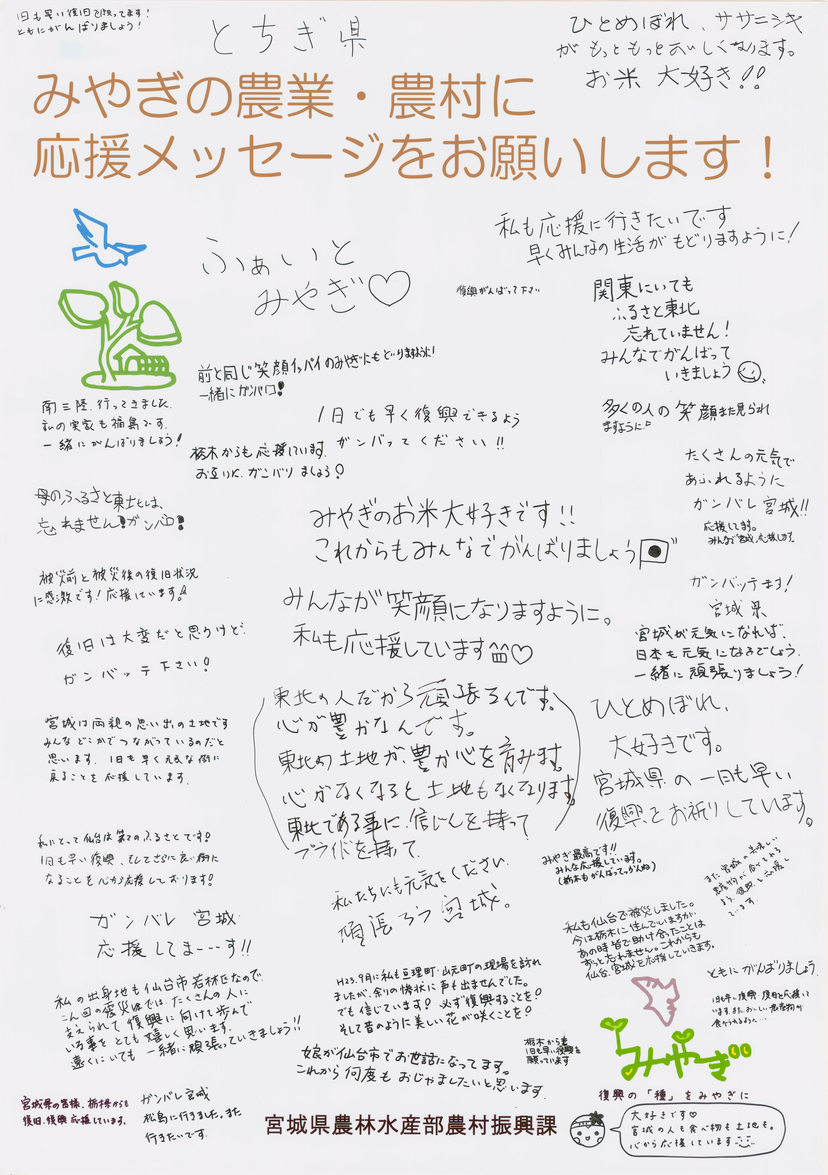 1日も早い復旧を願ってます!
ともにがんばりましょう!
とちぎ県
ひとめぼれ、ササニシキ
がもっともっとおいしくなります。
お米 大好き!!
みやぎの農業・農村に
応援メッセージをお願いします!
私も応援に行きたいです
早くみんなの生活がもどりますように!
ふぁいと
みやぎ♡
復興がんばって下さい
関東にいても
ふるさと東北
忘れていません!
みんなでがんばって
いきましょう
前と同じ笑顔イッパイのみやぎにもどりますように!
一緒にガンバロ!
南三陸、行ってきました。
私の実家も福島です。
一緒にがんばりましょう!
1日でも早く復興できるよう
ガンバってください!!
多くの人の笑顔また見られ
ますように
栃木からも応援しています。
お互いに、ガンバリましょう?
たくさんの元気で
あふれるように
ガンバレ宮城!!
応援してます。
みんなで宮城応援します。
母のふるさと東北は、
忘れません!ガンバロ!
みやぎのお米大好きです!!
これからもみんなでがんばりましょう
被災前と被災後の復旧状況
に感激です!応援しています。
ガンバッテます!
宮城県
みんなが笑顔になりますように。
私も応援しています♡
宮城が元気になれば、
日本も元気になるでしょう。
一緒に頑張りましょう!
復旧は大変だと思うけど、
ガンバッテ下さい!
東北の人だから頑張るんです。
心が豊かなんです。
東北の土地が、豊か心を育みます。
心がなくなると土地もなくなります。
東北である事に、信じんを持って
プライドを持って
ひとめぼれ、
大好きです。
宮城県の一日も早い
復興をお祈りしています。
宮城は両親の思い出の土地です
みんなどこかでつながっているのだと
思います。1日も早く元気な街に
戻ることを応援しています。
私にとって仙台は第2のふるさとです!
1日も早い復興、そしてさらに良い街に
なることを心から応援しております!
みやぎ最高です!!
みんな応援しています。
(栃木もがんばってっかんね)
また宮城の美味しい
私たちにも元気をください
頑張ろう宮城。
ガンバレ 宮城
応援してまーーーす!!
私も仙台で被災しました。
今は栃木に住んでいますが、
あの時皆で助け合ったことは
ずっと忘れません。これからも
仙台、宮城を応援していきます。
ともにがんばりましょう
私の出身地も仙台市若林区なので
こん回の震災では、たくさんの人に
支えられて復興に向けて歩んで
いる事をとても嬉しく思います。
遠くにいても一緒に頑張っていきましょう!!
H23.9月に私も亘理町・山元町の現場を訪れ
ましたが、余りの惨状に声も出ませんでした。
でも信じています!必ず復興することを!
そして昔のように美しい花が咲くことを!
1日も早い復興・復旧を応援して
います。また、おいしい農産物が
食べられるように…
栃木から
1日も早い復興を
願っています
みやぎ
娘が仙台市でお世話になってます。
これから何度もおじゃましたいと思います
復興の「種」をみやぎに
宮城県の皆様、栃木県からも
復旧、復興応援しています。
ガンバレ宮城
松島に行きました。また
行きたいです。
宮城県農林水産部農村振興課
大好きです♡
宮城の人も食べ物も土地も。
心から応援しています